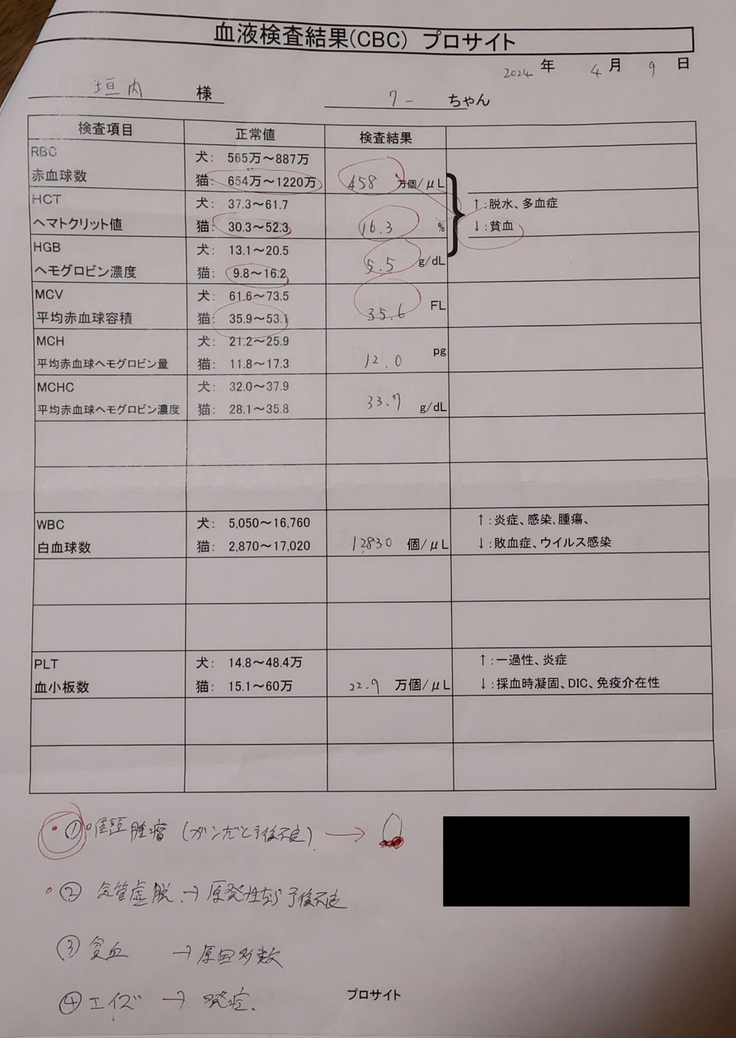 血液検査結果(CBC) プロサイト
2024 年 4 月 9 日
垣内 様 クー ちゃん
検査項目 正常値 検査結果
RBC 犬: 565万~887万
赤血球数 猫: 654万~1220万 458 万個/μL
HCT 犬: 37.3~61.7 ↑:脱水、多血症
ヘマトクリット値 猫: 30.3~52.3 16.3 % ↓:貧血
HGB 犬: 13.1~20.5
ヘモグロビン濃度 猫: 9.8~16.2 5.5 g/dL
MCV 犬: 61.6~73.5
平均赤血球容積 猫: 35.9~53.1 35.6 FL
MCH 犬: 21.2~25.9
平均赤血球ヘモグロビン量 猫: 11.8~17.3 12.0 pg
MCHC 犬: 32.0~37.9
平均赤血球ヘモグロビン濃度 猫: 28.1~35.8 33.7 g/dL
WBC 犬: 5,050~16,760 ↑:炎症、感染、腫瘍、
白血球数 猫: 2,870~17,020 12830 個/μL ↓:敗血症、ウイルス感染
PLT 犬: 14.8~48.4万 ↑:一過性、炎症
血小板数 猫: 15.1~60万 22.9 万個/μL ↓:採血時凝固、DIC、免疫介在性
① 喉頭腫瘤 (ガンだと予後不良) →
② 気管虚脱 → 原発性なら予後不良
③ 貧血 → 原因多数
④ エイズ → 発症.
プロサイト